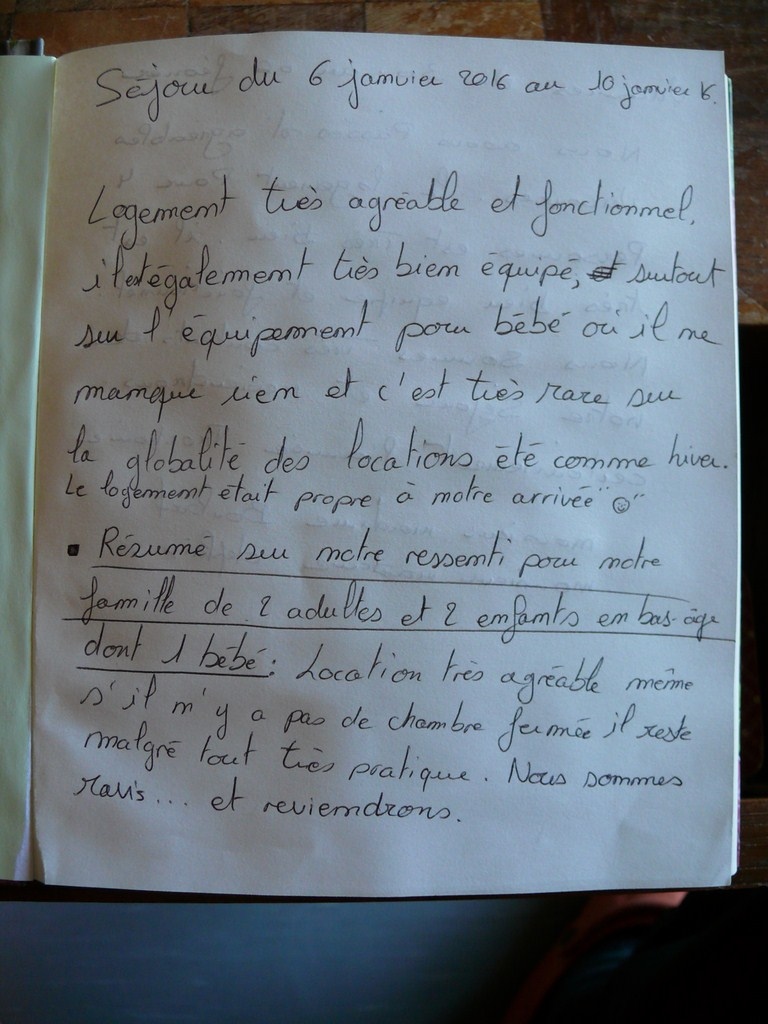 Séjour du 6 janvier 2016 au 10 janvier 16.
Logement très agréable et fonctionnel,
il est également très bien équipé, et surtout
sur l'équipement pour bébé où il ne
manque rien et c'est très rare sur
la globalité des locations été comme hiver.
Le logement était propre à notre arrivée "☺"
▪ Résumé sur notre ressenti pour notre
famille de 2 adultes et 2 enfants en bas-âge
dont 1 bébé : Location très agréable même
s'il n'y a pas de chambre fermée il reste
malgré tout très pratique. Nous sommes
ravis... et reviendrons.